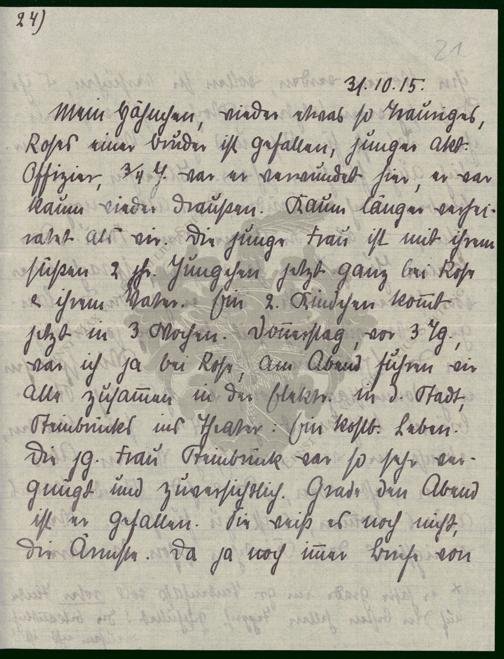 24)
21
31.10.15.
Mein Hähnchen, wieder etwas so Trauriges,
Roses einer Bruder ist gefallen, junger akt.
Offizier, 3/4 J. war er verwundet hier, er war
kaum wieder draußen. Kaum länger verhei-
ratet als wir. Die junge Frau ist mit ihrem
süßen 2 jhr. Jungchen jetzt ganz bei Rose
& ihrem Vater. Ein 2. Kindchen kom̅t
jetzt in 3 Wochen. Don̅erstag, vor 3 Tg,
war ich ja bei Rose, am Abend fuhren wir
alle zusam̅en in der Elektr. in d. Stadt,
Steinbrücks ins Theater: Ein kostb. Leben.
Die jg. Frau Steinbrück war so sehr ver-
gnügt und zuversichtlich. Grade den Abend
ist er gefallen. Sie weiß es noch nicht,
die Ärmste. Da ja noch im̅er Briefe von